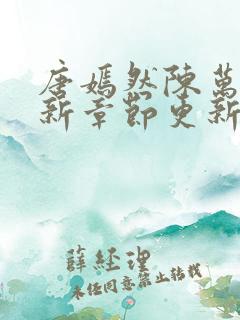 唐嫣然陳萬
新章節更新
薛經理
未經同意禁止轉載